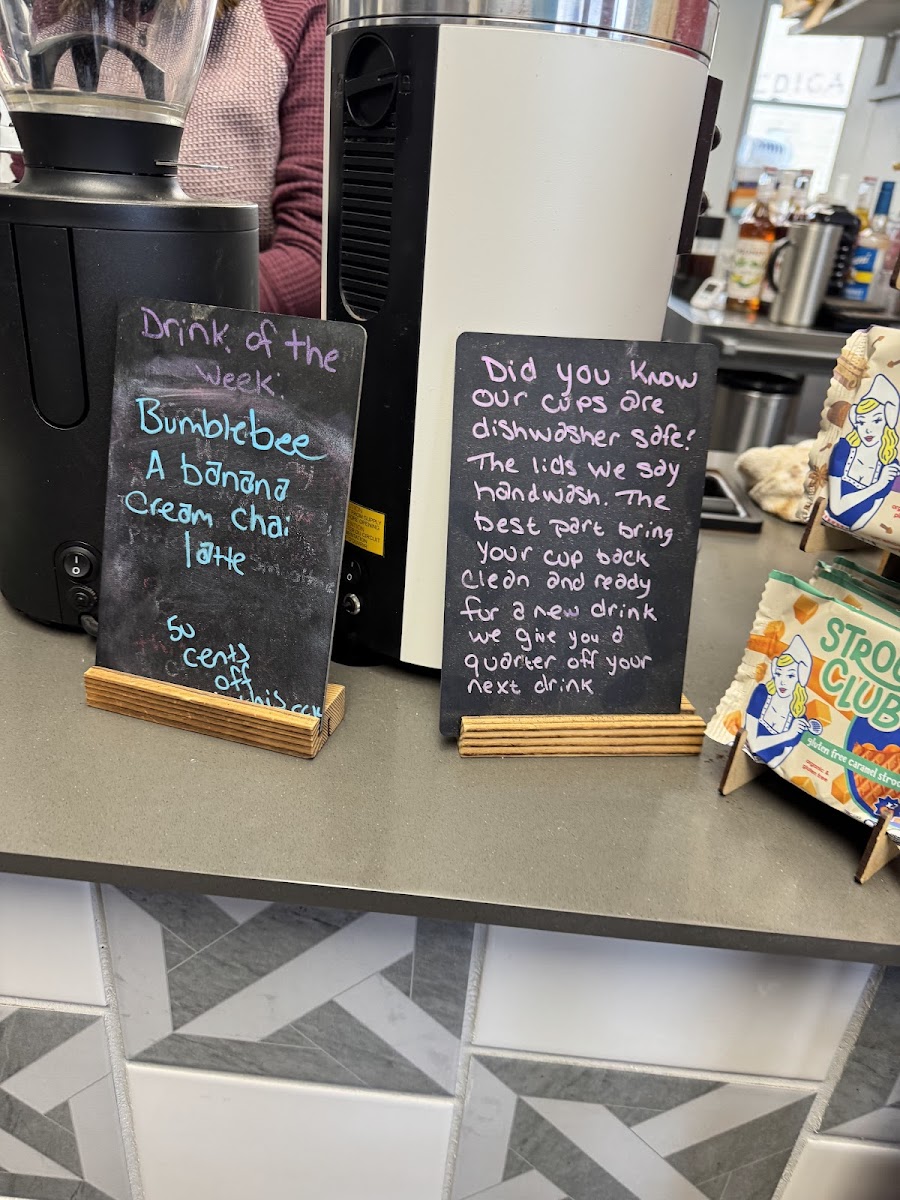 Drink of the
week:
Bumblebee
A banana
Cream chai
latte
50
cents
off
this
Did you know
our cups are
dishwasher safe!
The lids we say
handwash. The
best part bring
your cup back
clean and ready
for a new drink
we give you a
quarter off your
next drink
STROO
CLUB
gluten free caramel stroo
organic &
gluten free
x2